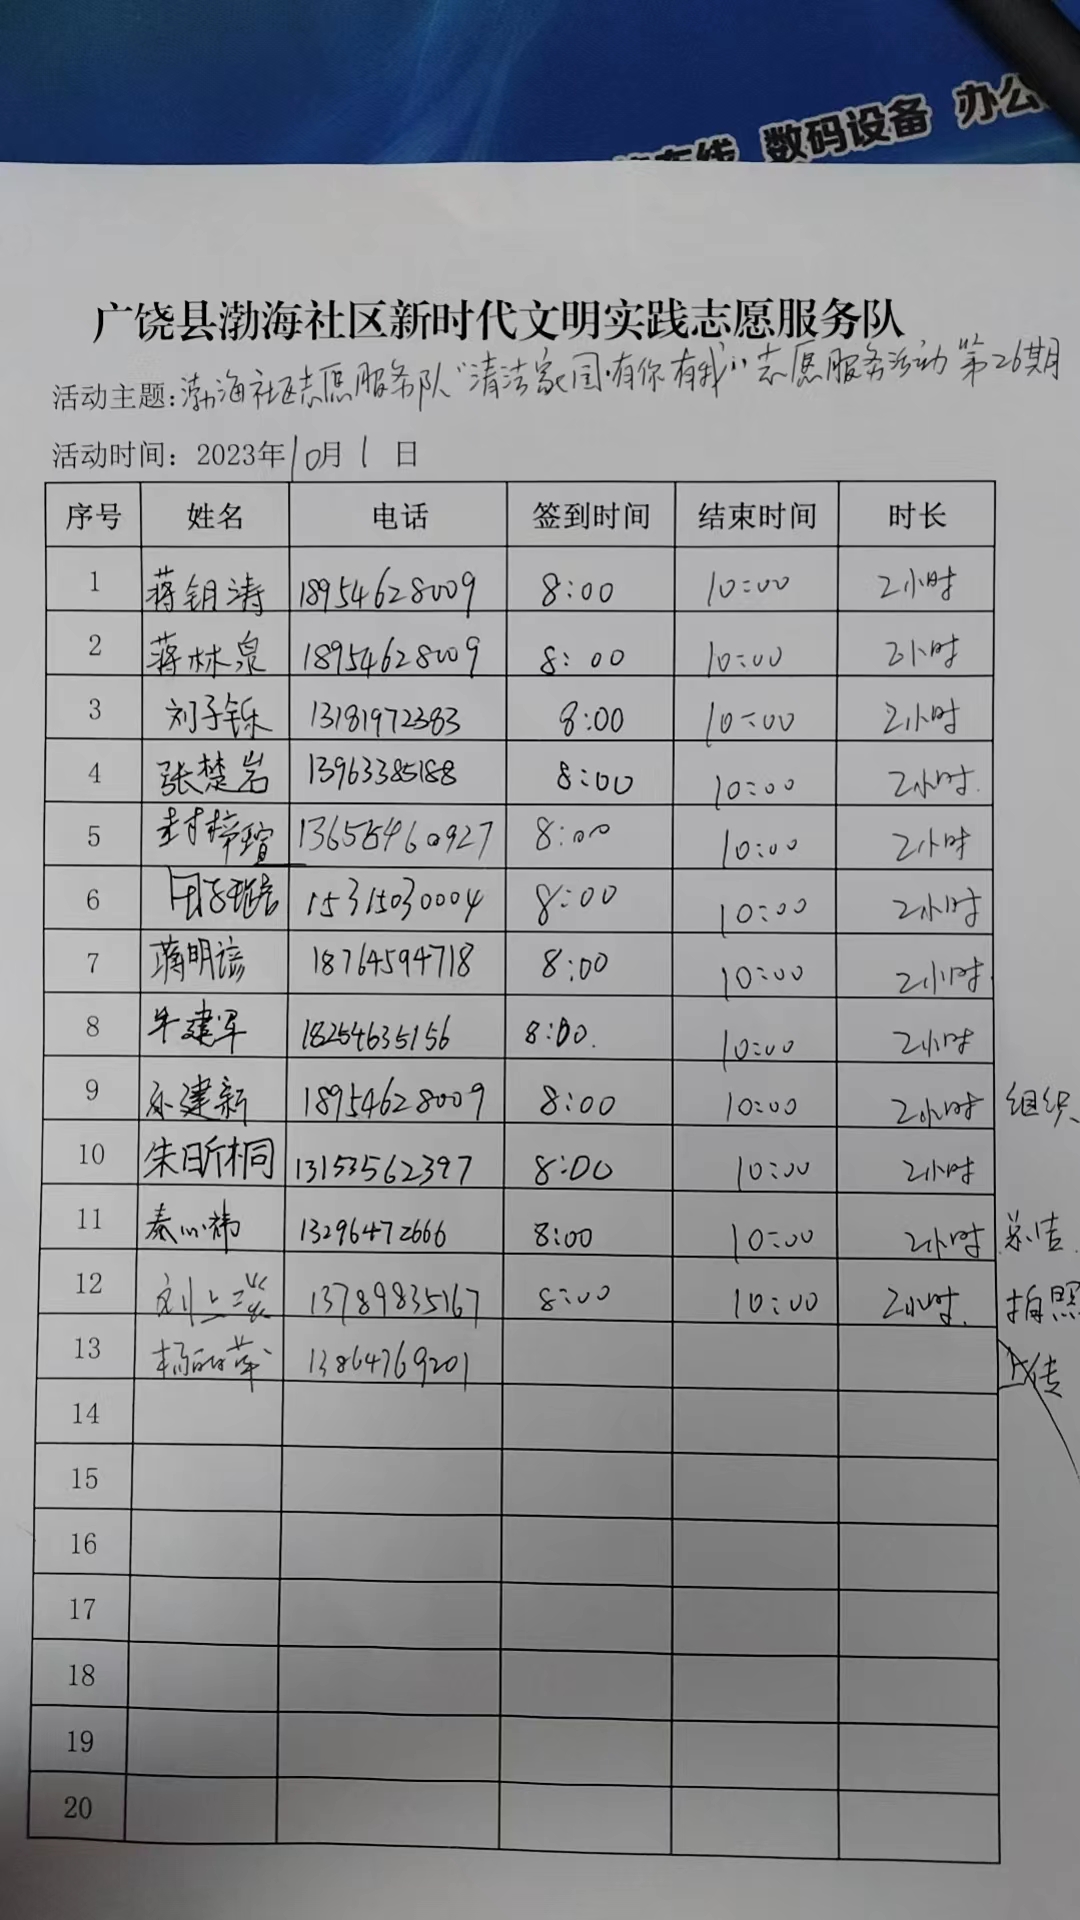 在线 数码设备 办公
广饶县渤海社区新时代文明实践志愿服务队
活动主题:渤海社区志愿服务队“清洁家园·有你有我”志愿服务活动第26期
活动时间：2023年10月1日
序号 姓名 电话 签到时间 结束时间 时长
1 蒋钥涛 18954628009 8:00 10:00 2小时
2 蒋林泉 18954628009 8:00 10:00 2小时
3 刘子铄 13181972383 8:00 10:00 2小时
4 张楚岩 13963385188 8:00 10:00 2小时.
5 封梓瑄 13655460927 8:00 10:00 2小时
6 15315030004 8:00 10:00 2小时
7 蒋明谚 18764594718 8:00 10:00 2小时
8 牛建军 18254635156 8:00. 10:00 2小时
9 孙建新 18954628009 8:00 10:00 2小时 组织
10 朱昕桐 13153562397 8:00 10:00 2小时
11 秦心祎 13296472666 8:00 10:00 2小时 总结
12 刘 13789835167 8:00 10:00 2小时. 拍照
13 杨 13864769201 上传
14
15
16
17
18
19
20